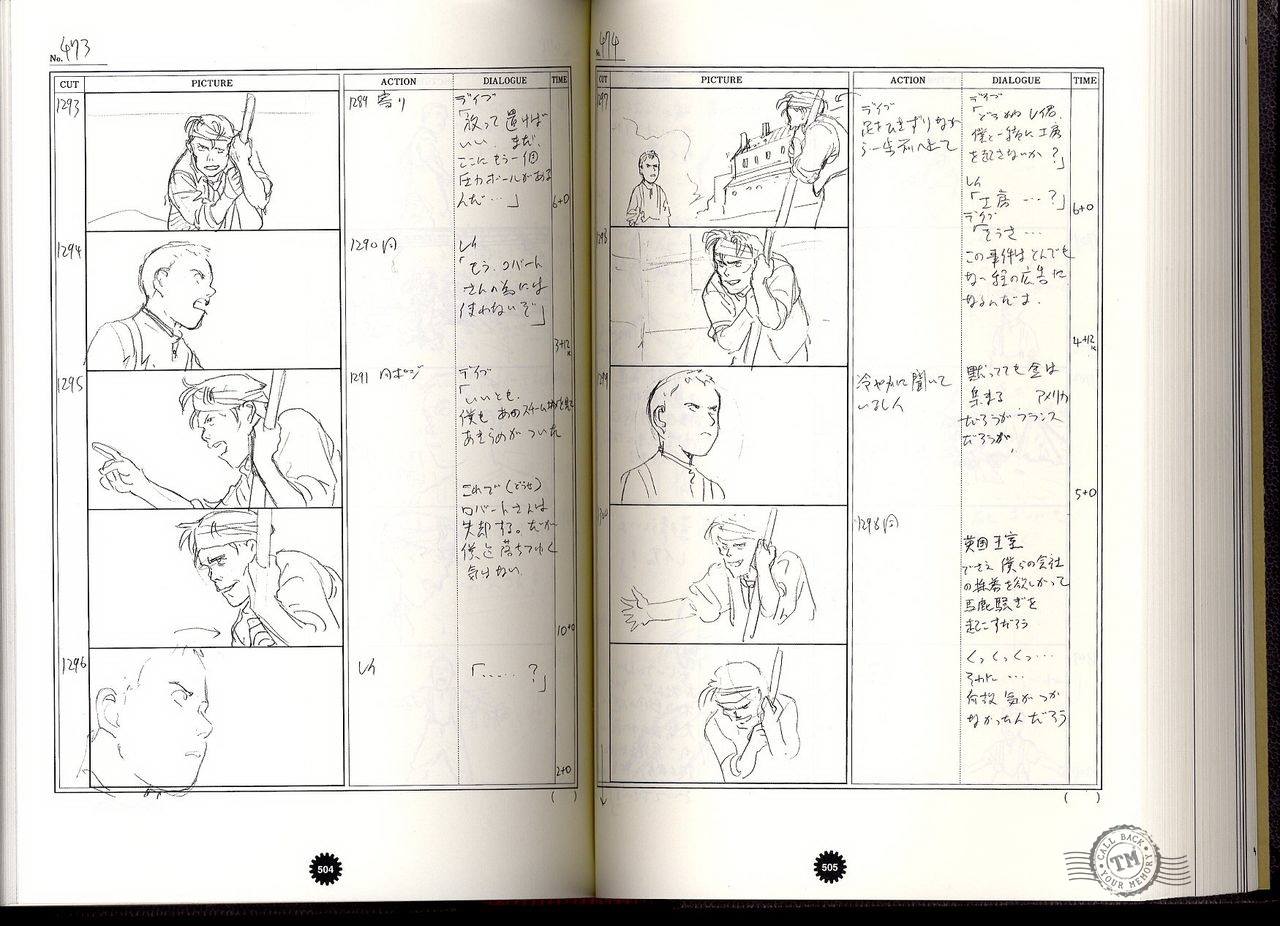 No. 473
CUT PICTURE ACTION DIALOGUE TIME
1293
1289 寄り
デイブ
「放って置けば
いい。まだ、
ここにもう一個
圧力ボールがある
んだ…」
6+0
1294
1290 同
レイ
「もう、ロバート
さんの為には
使わないぞ」
3+12
1295
1291 同ポジ
デイブ
「いいとも、
僕も あのスチーム城を見て
あきらめが ついた
これで (どうせ)
ロバートさんは
失却する。だが
僕は 落ちてゆく
気はない
10+0
1296
レイ
「……?」
2+0
( )
504
No. 474
CUT PICTURE ACTION DIALOGUE TIME
1297
デイブ
足をひきずりなが
ら
デイブ
「どうかね レイ君、
僕と一緒に工房
を起さないか?」
レイ
「工房 …?」
デイブ
「そうさ…
6+0
この事件はとんでも
ない 程の広告に
なるんだよ。
4+12
冷やかに聞いて
いるレイ
黙ってても 金は
集まる アメリカ
だろうが フランス
だろうが、
5+0
1298 同
英国王室
でさえ 僕らの会社
の 株券を欲しがって
馬鹿騒ぎを
起こすだろう
くっくっくっ…
それに…
何故 気がつか
なかったんだろう
( )
505
CALL BACK
TM
YOUR MEMORY